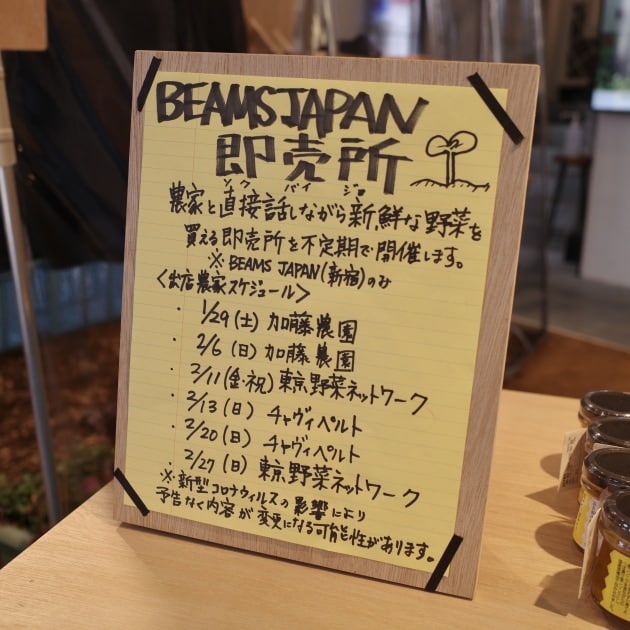 BEAMS JAPAN
即売所
ソク バイ ジョ
農家と直接話しながら新鮮な野菜を
買える即売所を不定期で開催します。
※ BEAMS JAPAN(新宿)のみ
〈出店農家スケジュール〉
・1/29(土) 加藤農園
・2/6(日) 加藤農園
・2/11(金・祝) 東京野菜ネットワーク
・2/13(日) チャヴィペルト
・2/20(日) チャヴィペルト
・2/27(日) 東京野菜ネットワーク
※新型コロナウィルスの影響により
予告なく内容が変更になる可能性があります。